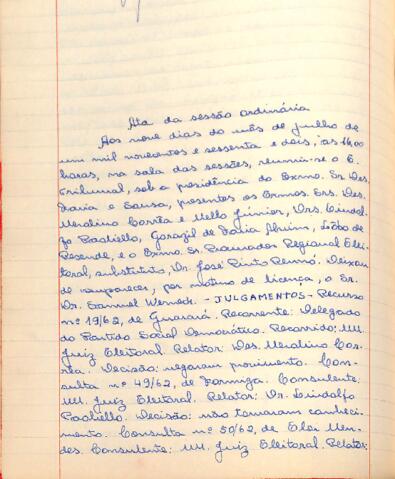 Ata da sessão ordinária
Aos nove dias do mês de julho de
um mil novecentos e sessenta e dois, às 16,00
horas, na sala das sessões, reuniu-se o E.
Tribunal, sob a presidência do Exmo. Sr. Des.
Faria e Sousa, presentes os Exmos. Srs. Des.
Meralino Corrêa e Mello Júnior, Drs. Lindol-
fo Padiello, Gorazil de Faria Alvim, Lôbo de
Resende, e o Exmo. Sr. Procurador Regional Elei-
toral, substituto, Dr. José Pinto Rennó. Deixou
de comparecer, por motivo de licença, o Sr.
Dr. Samuel Werneck. - JULGAMENTOS - Recurso
nº 19/62, de Guarará. Recorrente: Delegado
do Partido Social Democrático. Recorrido: MM.
Juiz Eleitoral. Relator: Des. Meralino Cor-
rêa. Decisão: negaram provimento. Con-
sulta nº 49/62, de Formiga. Consulente:
MM. Juiz Eleitoral. Relator: Dr. Lindolfo
Padiello. Decisão: não tomaram conheci-
mento. Consulta nº 50/62, de Elói Men-
des. Consulente: MM. Juiz Eleitoral. Relator: